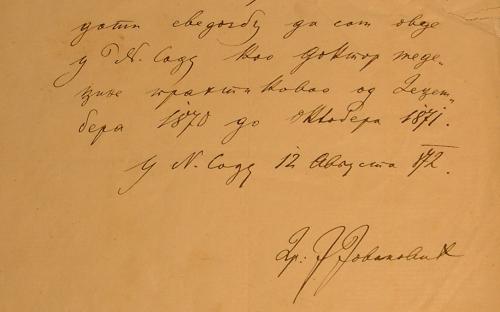 дати сведоџбу да сам овде
у Н. Саду као доктор меде-
цине практиковао од Децем-
бера 1870 до Октобера 1871.
У Н. Саду 12 Августа 872.
Др: J Јовановић